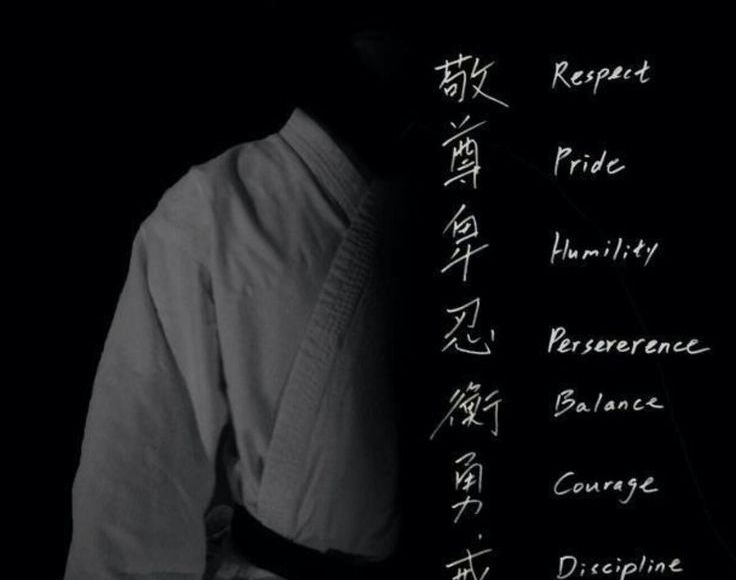 敬 Respect
尊 Pride
卑 Humility
忍 Persererence
衡 Balance
勇 Courage
戒 Discipline